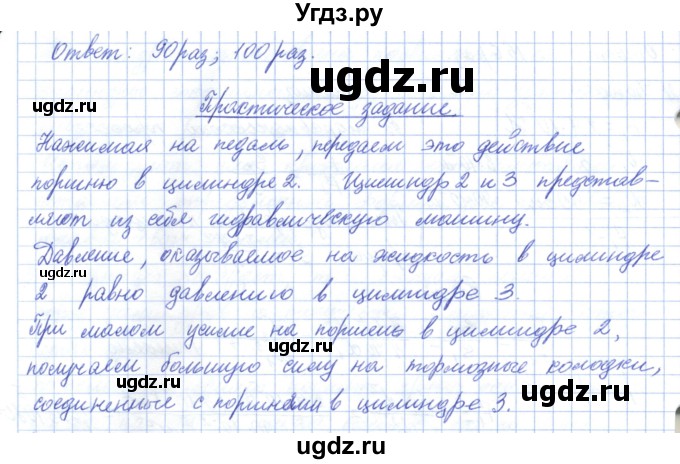 Угдз.ру
Ответ: 90 раз; 100 раз.
ugdz.ru
Практическое задание
Нажимая на педаль, передаем это действие
поршню в цилиндре 2. Цилиндр 2 и 3 представ-
ляют из себя гидравлическую машину.
ugdz.ru
Давление, оказываемое на жидкость в цилиндре
2 равно давлению в цилиндре 3.
ugdz.ru
При малом усилие на поршень в цилиндре 2,
получаем большую силу на тормозные колодки,
ugdz.ru
соединенные с поршнями в цилиндре 3.
ugdz.ru
ugdz.ru